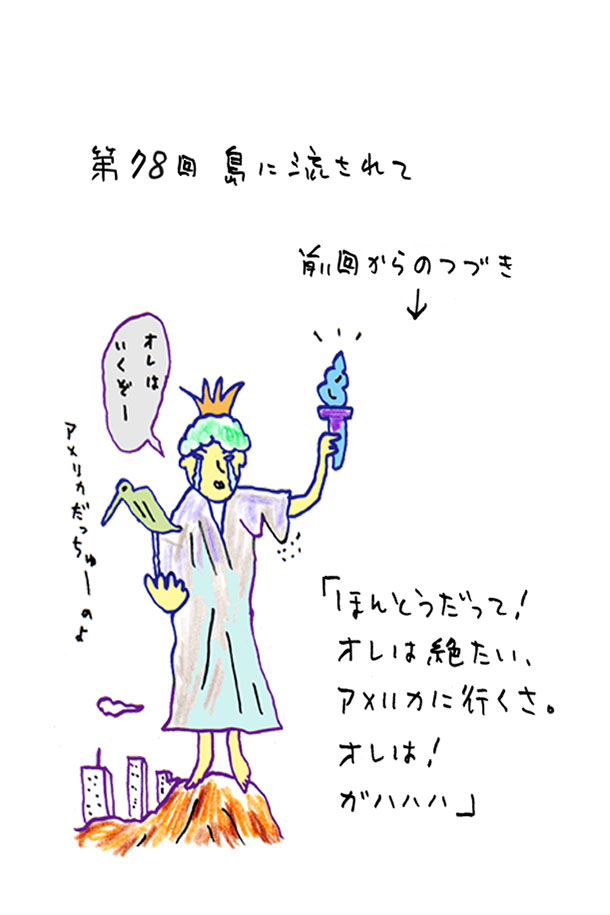 第78回 島に流されて
前回からのつづき
↓
オレは
いくぞー
アメリカだっちゅーのよ
「ほんとうだって!
オレは絶たい、
アメリカに行くさ。
オレは!
ガハハハ」